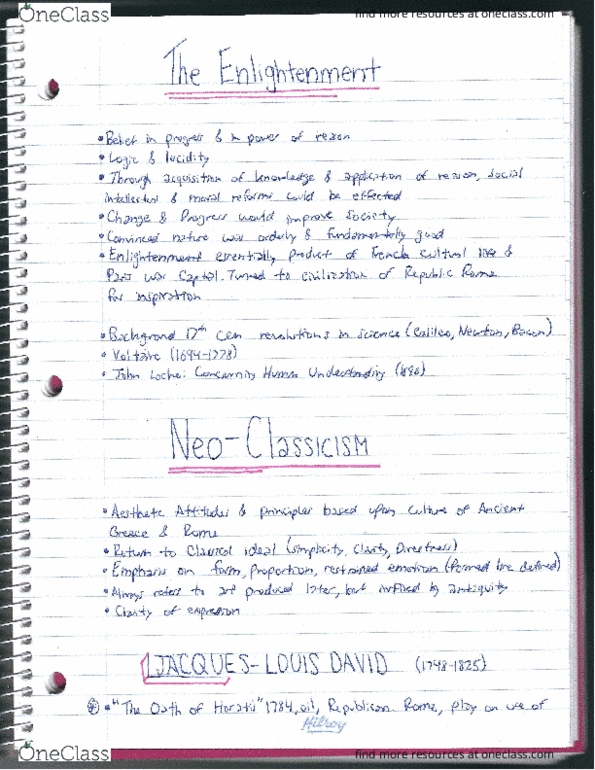 OneClass
find more resources at oneclass.com
The Enlightenment
• Belief in progress & in power of reason
• Logic & lucidity
• Through acquisition of knowledge & application of reason, social
intellectual & moral reforms could be effected
• Change & Progress would improve society
• Convinced nature was orderly & fundamentally good
• Enlightenment essentially product of French cultural life &
Paris was Capital. Turned to civilization of Republic Rome
for inspiration
• Background 17th Cen revolutions in science (Galileo, Newton, Bacon)
• Voltaire (1694-1778)
• John Locke: Concerning Human Understanding (1690)
Neo-Classicism
• Aesthetic Attitudes & principles based upon culture of Ancient
Greece & Rome
• Return to Classical ideal (simplicity, Clarity, Directness)
• Emphasis on form, proportion, restrained emotion (formed line defined)
• Always refers to art produced later, but inspired by antiquity
• Clarity of expression
JACQUES-LOUIS DAVID (1748-1825)
• "The Oath of Horatii" 1784, oil, Republican Rome, play on use of
Hilroy
OneClass
find more resources at oneclass.com